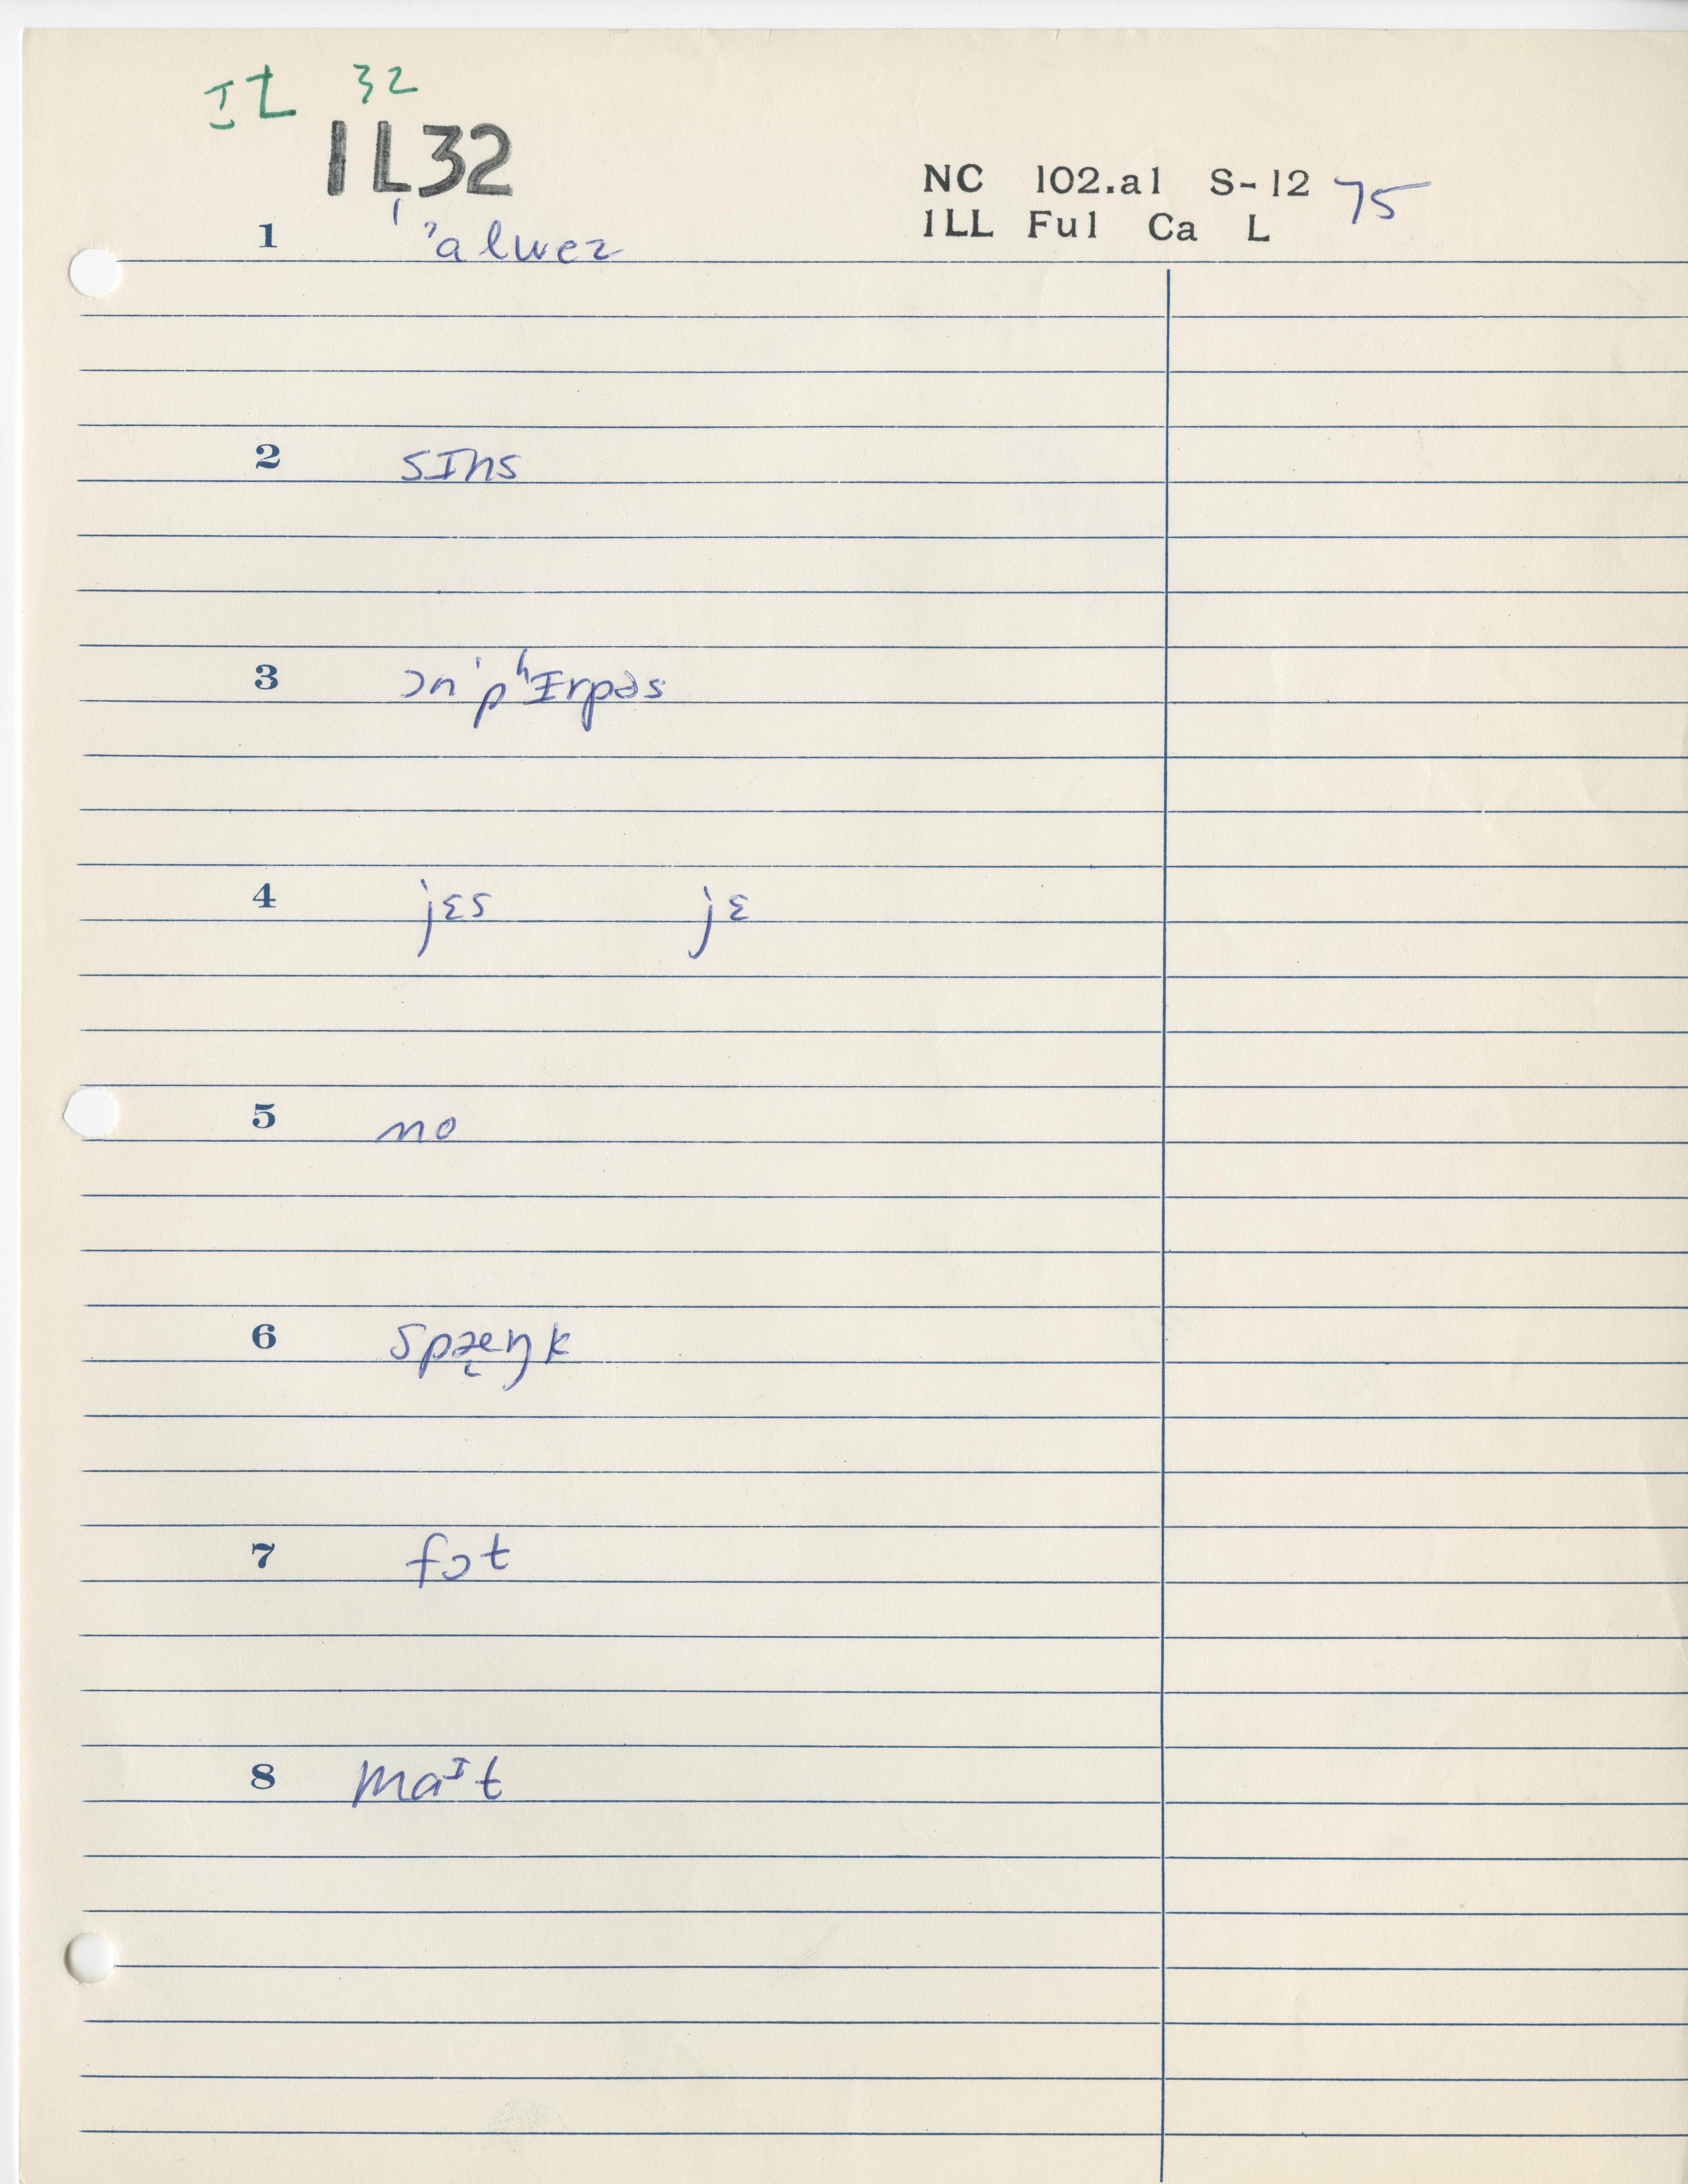 IL 32
IL32
NC 102.a1 S-12 75
ILL Ful Ca L
1 ˈʔalwez
2 sɪns
3 ɔnˈpʰɪrpəs
4 jɛs jɛ
5 no
6 spæŋk
7 fɔt
8 maᶦt